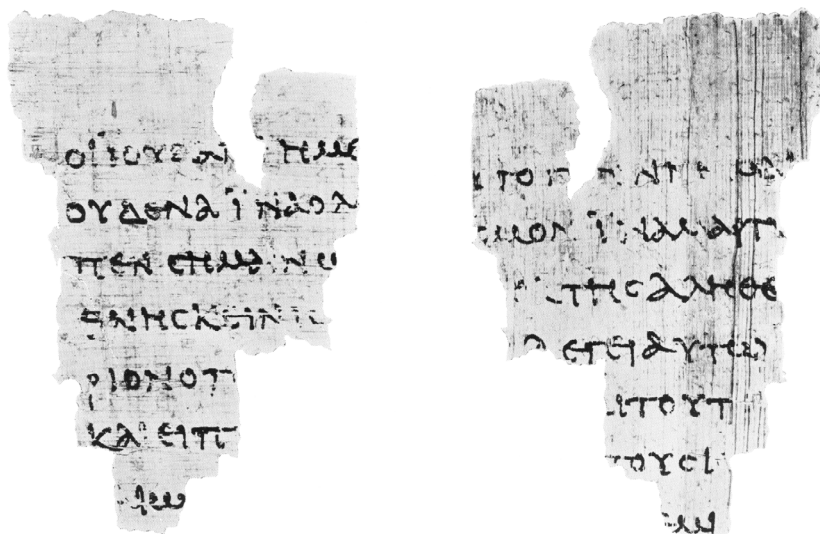 ΟΙ ΪΟΥΔΑΙ ΗΜΕ
ΟΥΔΕΝΑ ΪΝΑ Ο Λ
ΠΕΝ ϹΗΜΑΙΝΩ
ΘΝΗϹΚΕΙΝ
ΡΙΟΝ Ο Π
ΚΑΙ ΕΙΠ
ΤΟ
ϹΜΟΝ ΪΝΑ ΜΑΡΤΥ
ΤΗϹ ΑΛΗΘΕ
ΛΕΓΕΙ ΑΥΤΩ
ΑΙ ΤΟΥΤ
ΤΟΥϹ Ι